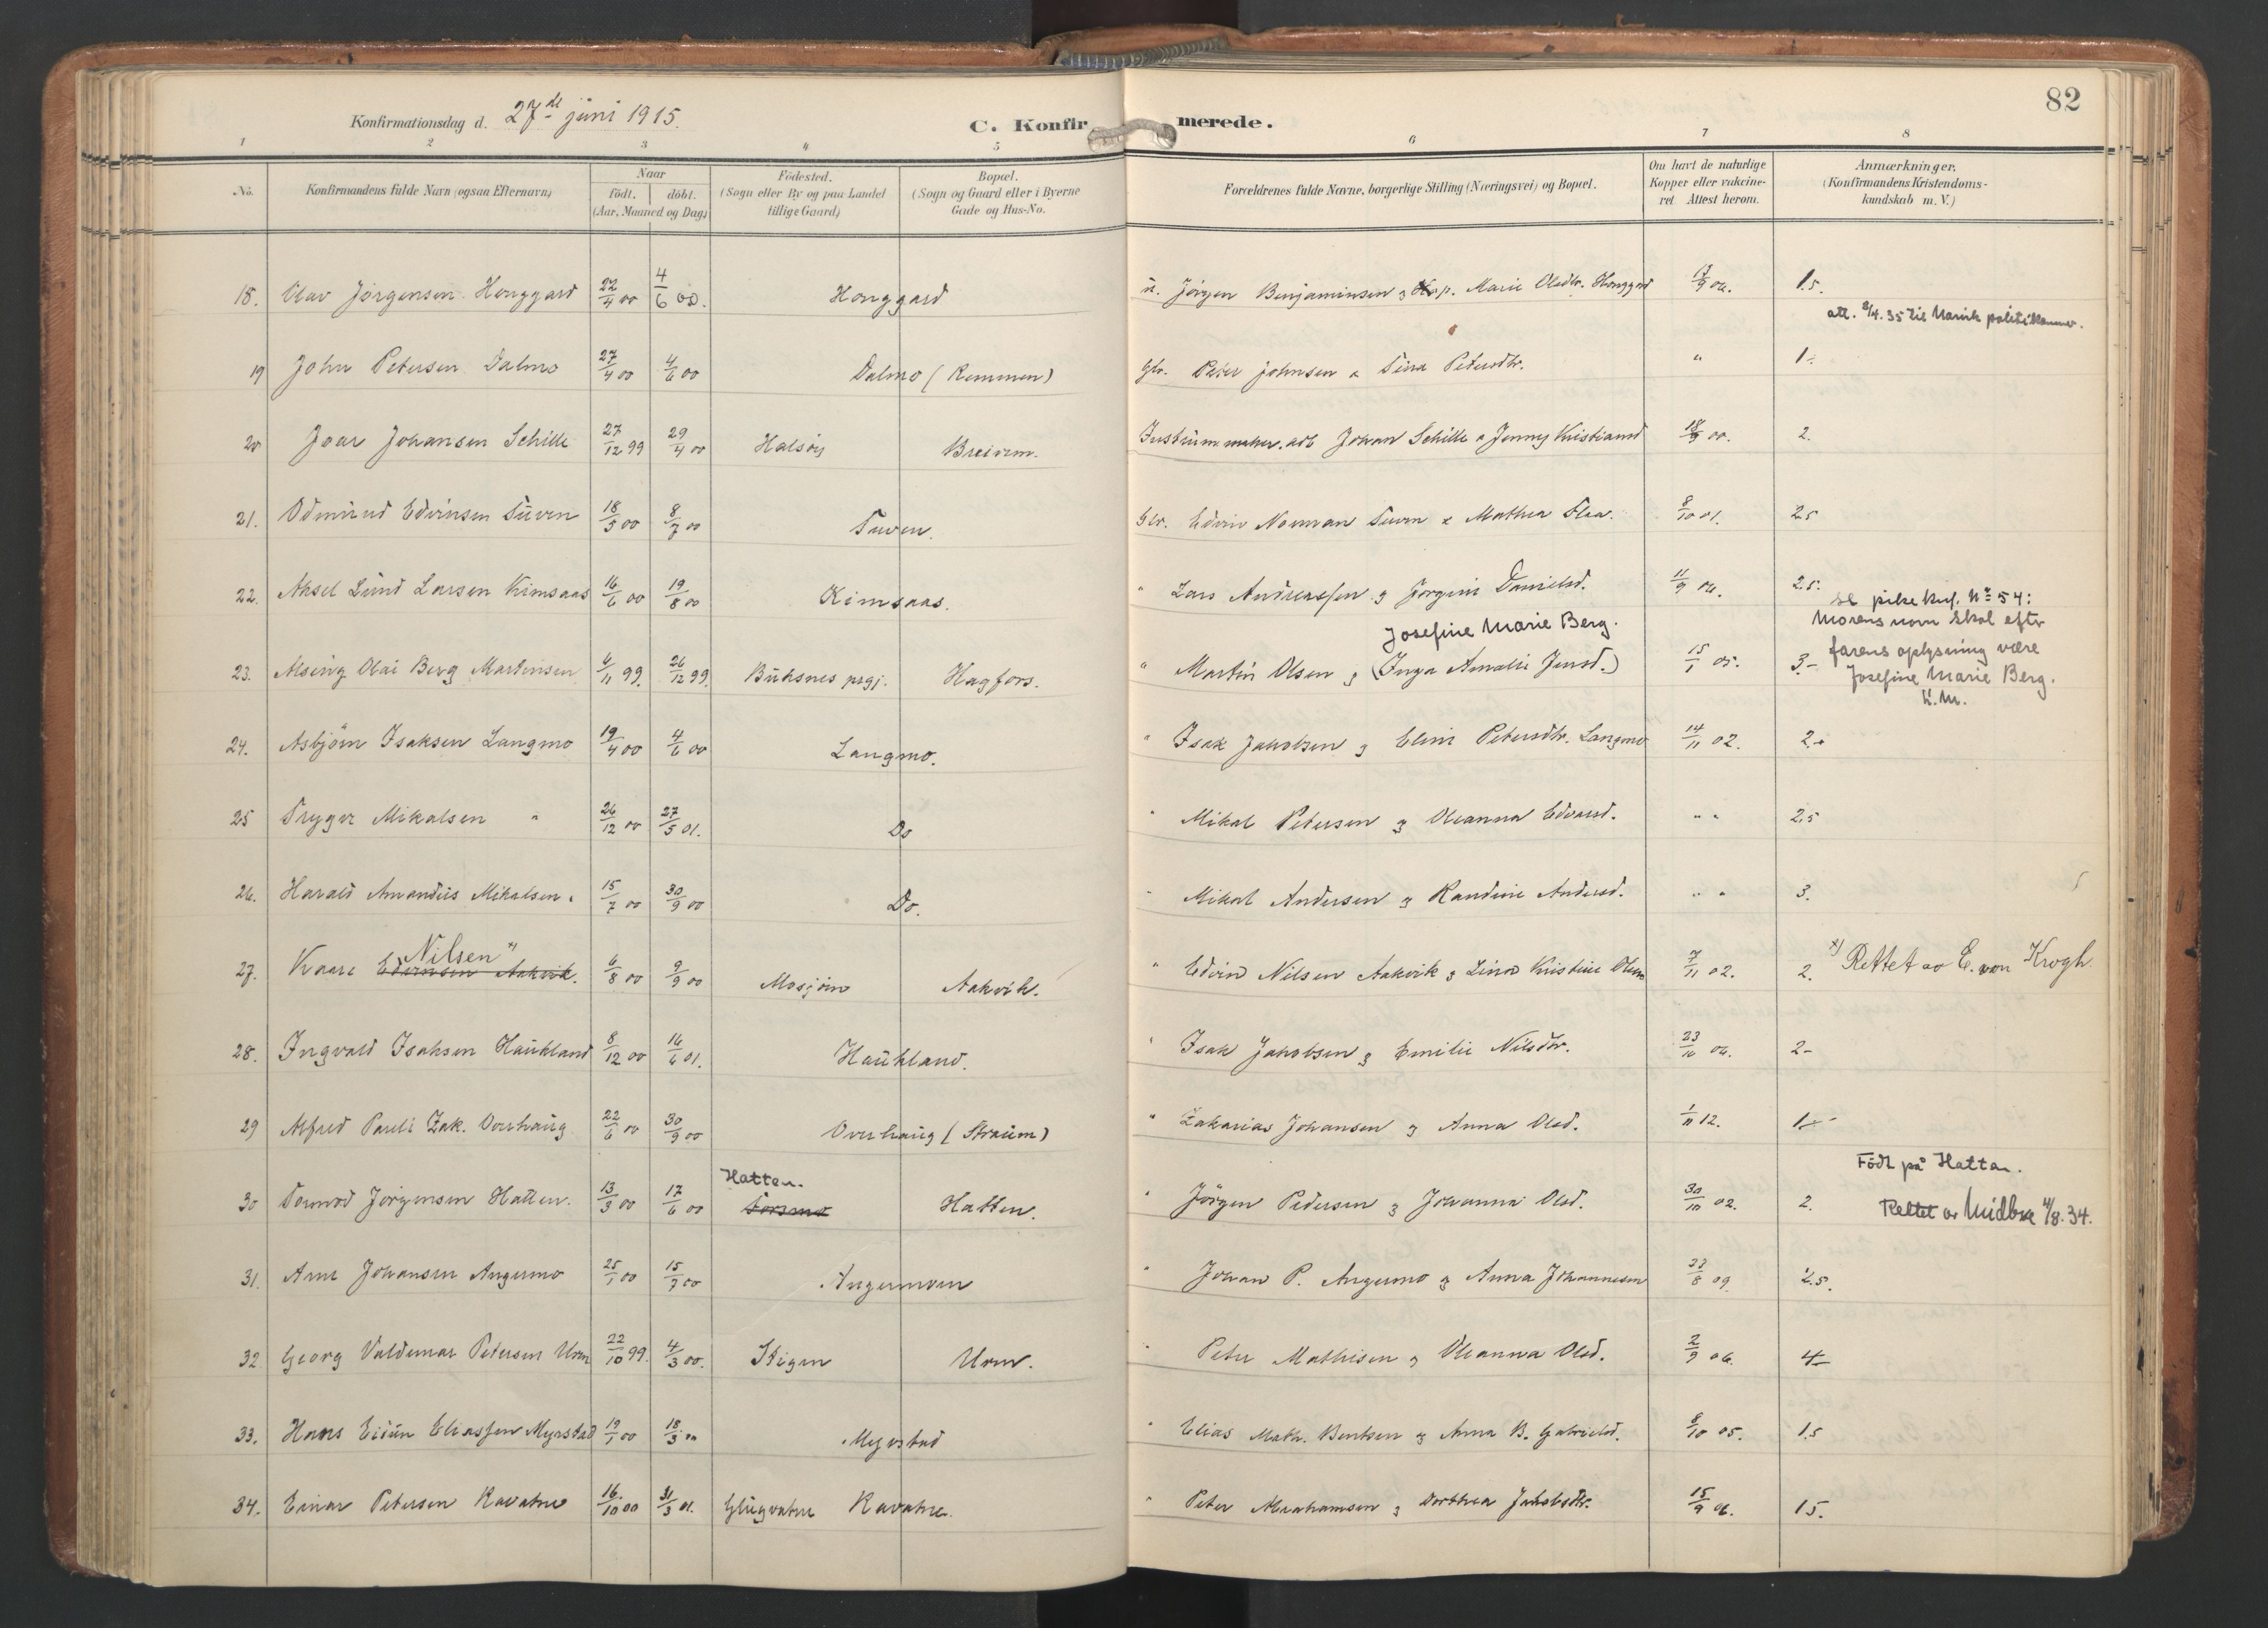 82
Konfirmationsdag d. 27de juni 1915.
C. Konfirmerede.
1 2 3 4 5 6 7 8
No. Konfirmandens fulde Navn (ogsaa Efternavn) Naar födt. döbt. (Aar, Maaned og Dag) Födested. (Sogn eller By og paa Landet tillige Gaard) Bopæl. (Sogn og Gaard eller i Byerne Gade og Hus-No. Forældrenes fulde Navne, borgerlige Stilling (Næringsvei) og Bopæl. Om havt de naturlige Kopper eller vakcineret. Attest herom. Anmærkninger. (Konfirmandens Kristendomskundskab m. V.)
18. Olav Jörgensen Honggard 22/4 00 4/6 00. Honggard Jörgen Benjaminsen g Marie Olsdtr. Honggrd 1.5.
att. 8/4.35 til Narvik politikammer.
19 John Petersen Dalmo 27/4 00 4/6 00 Dalmo (Remmen) Gbr. Peter Johnsen & Tina Petersdtr. " 1-
20 Joar Johansen Schille 27/12 99 29/4 00 Halsöy Johan Schille & Jenny Kristiansd 18/9 00. 2.
21. Odmund Edvinsen Tuven 18/5 00 8/7 00 Tuven. Gbr. Edvin Norman Tuven & Mathea Flaa. 8/10 01. 2.5
22. Aksel Lund Larsen Kimsaas 16/6 00 19/8 00 Kimsaas. " Lars Andreassen g Jörgine Danielsd. 11/9 06. 2.5.
se pike knf. No 54:
Morens navn skal efter
Josefine Marie Berg.
23. Alsing Olai Berg Martinsen 6/11 99. 26/12 99. Buksnes prgj. Hagfors. " Martin Olsen g (Inga Amalie Jensd.) 15/1 05. 3.- farens oplysning være
Josefine Marie Berg.
K.M.
24. Asbjörn Isaksen Langmo 19/4 00 4/6 00 Langmo. " Isak Jakobsen g Eline Petersdtr. Langmo 14/11 02. 2.+
25 Trygve Mikalsen " 26/12 00 27/5 01. Do " Mikal Petersen g Oleanna Edvardsd. " " 2.5
26. Harald Amandus Mikalsen " 15/7 00 30/9 00 Do. " Mikal Andersen g Randine Andersd. " " 3.
Nilsen x)
27. Kaare Edvinsen Aakvik. 6/8 00 9/9 00 Mosjöen Aakvik. " Edvin Nilsen Aakvik g Lina Kristine Olsen 7/11 02. 2. x) Rettet av E. von Krogh
28. Ingvald Isaksen Haukland 8/12 00 16/6 01. Haukland. " Isak Jakobsen g Emilie Nilsdtr. 23/10 06. 2-
29 Alfred Pauli Zak. Overhaug 22/6 00 30/9 00 Overhaug (Straum) " Zakarias Johansen g Anna Olsd. 1/11 12. 1-
Hatten.
Födt på Hatten.
30 Tormod Jörgensen Hatten. 13/3 00 17/6 00 Forsmo Hatten. " Jörgen Pedersen g Johanna Olsd. 30/10 02. 2. Rettet av Midbøe 4/8.34.
31. Arne Johansen Angermo 25/1 00 15/7 00 Angermoen " Johan P. Angermo g Anna Johannesen 22/8 09. 2.5.
32. Georg Valdemar Petersen Uren 22/10 99. 4/3 00. Stigen Uren. " Peter Mathisen g Oleanna Olsd. 2/9 06. 4-
33. Hans Eidun Eliassen Myrstad 19/1 00 18/3 00 Myrstad " Elias Math. Bentsen g Anna B. Gabrielsd. 8/10 05. 1.5
34. Einar Petersen Ravatne 16/10 00 31/3 01. Glugvatne Ravatne. " Peter Abrahamsen g Dorthea Jakobsdtr. 15/9 06. 1.5.